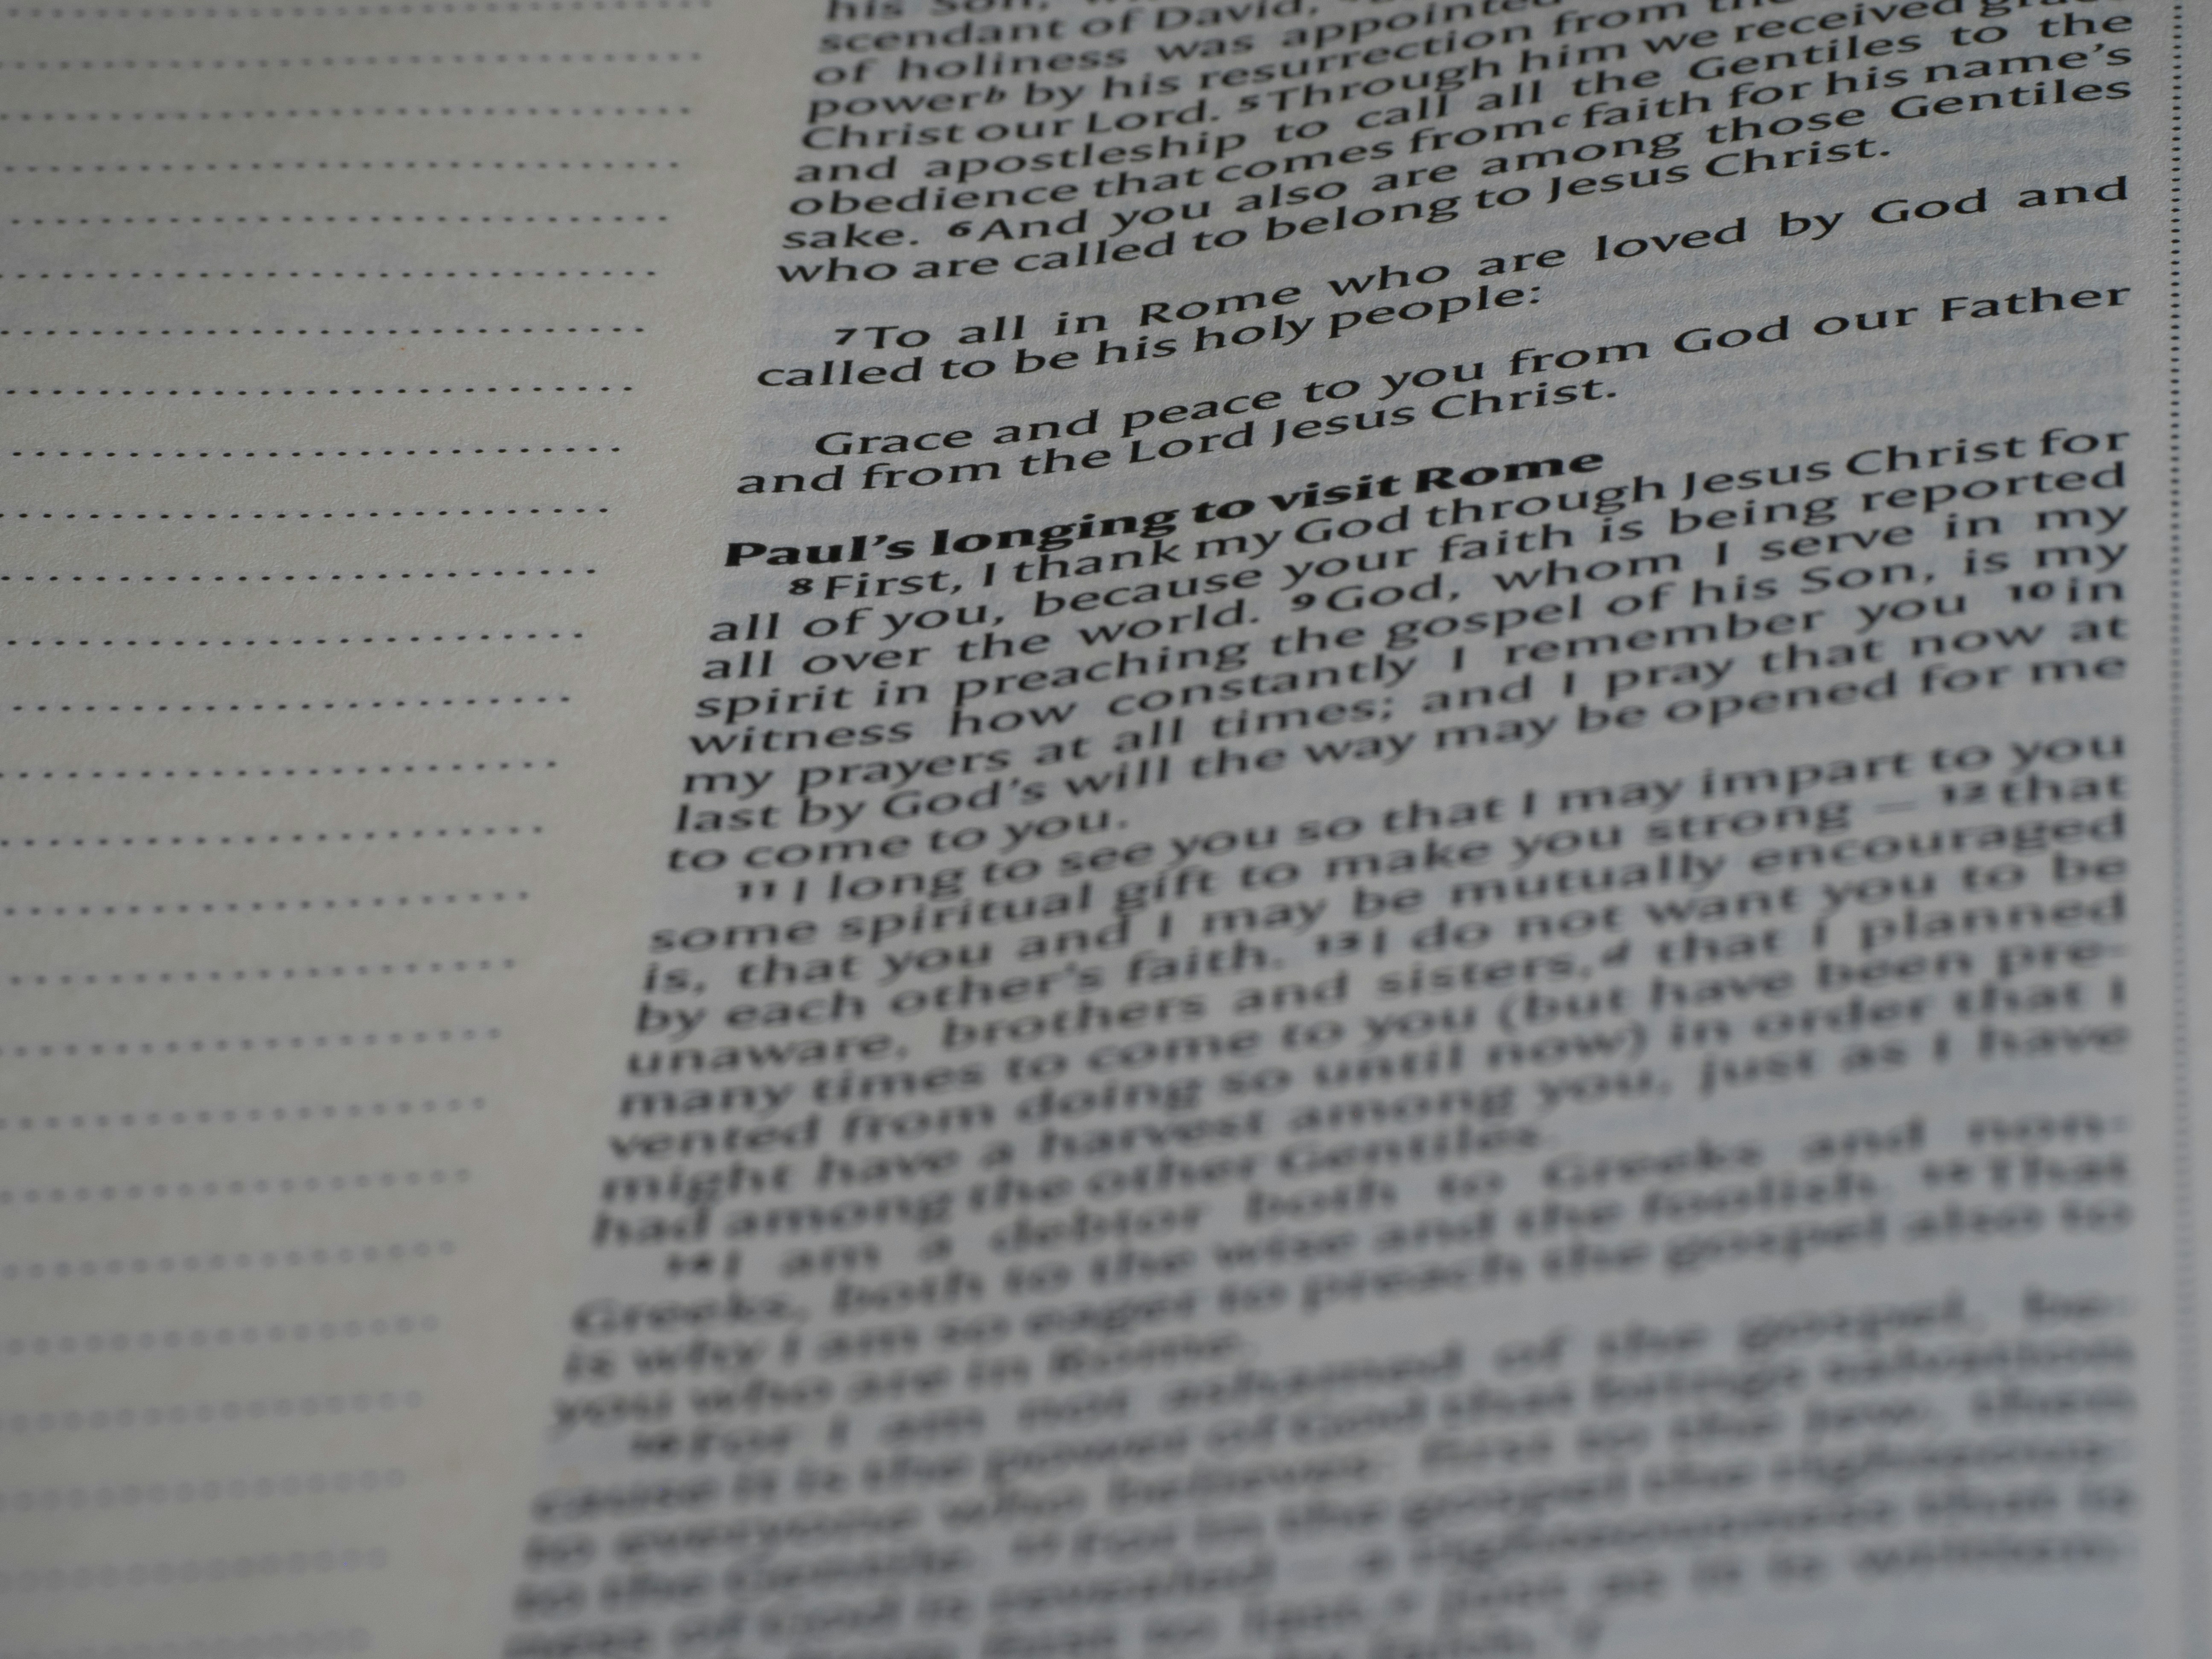 his Son,
scendant of David,
of holiness was appointed
powerᵇ by his resurrection from
Christ our Lord. ⁵Through him we received
and apostleship to call all the Gentiles to the
obedience that comes fromᶜ faith for his name’s
sake. ⁶And you also are among those Gentiles
who are called to belong to Jesus Christ.
⁷To all in Rome who are loved by God and
called to be his holy people:
Grace and peace to you from God our Father
and from the Lord Jesus Christ.
Paul’s longing to visit Rome
⁸First, I thank my God through Jesus Christ for
all of you, because your faith is being reported
all over the world. ⁹God, whom I serve in my
spirit in preaching the gospel of his Son, is my
witness how constantly I remember you ¹⁰in
my prayers at all times; and I pray that now at
last by God’s will the way may be opened for me
to come to you.
¹¹I long to see you so that I may impart to you
some spiritual gift to make you strong – ¹²that
is, that you and I may be mutually encouraged
by each other’s faith. ¹³I do not want you to be
unaware, brothers and sisters,ᵈ that I planned
many times to come to you (but have been pre-
vented from doing so until now) in order that I
might have a harvest among you, just as I have
had among the other Gentiles.
¹⁴I am a debtor both to Greeks and non-
Greeks, both to the wise and the foolish. ¹⁵That
is why I am so eager to preach the gospel also to
you who are in Rome.
¹⁶For I am not ashamed of the gospel, be-
cause it is the power of God that brings salvation
to everyone who believes: first to the Jew, then
to the Gentile. ¹⁷For in the gospel the righteous-
ness of God is revealed – a righteousness that is